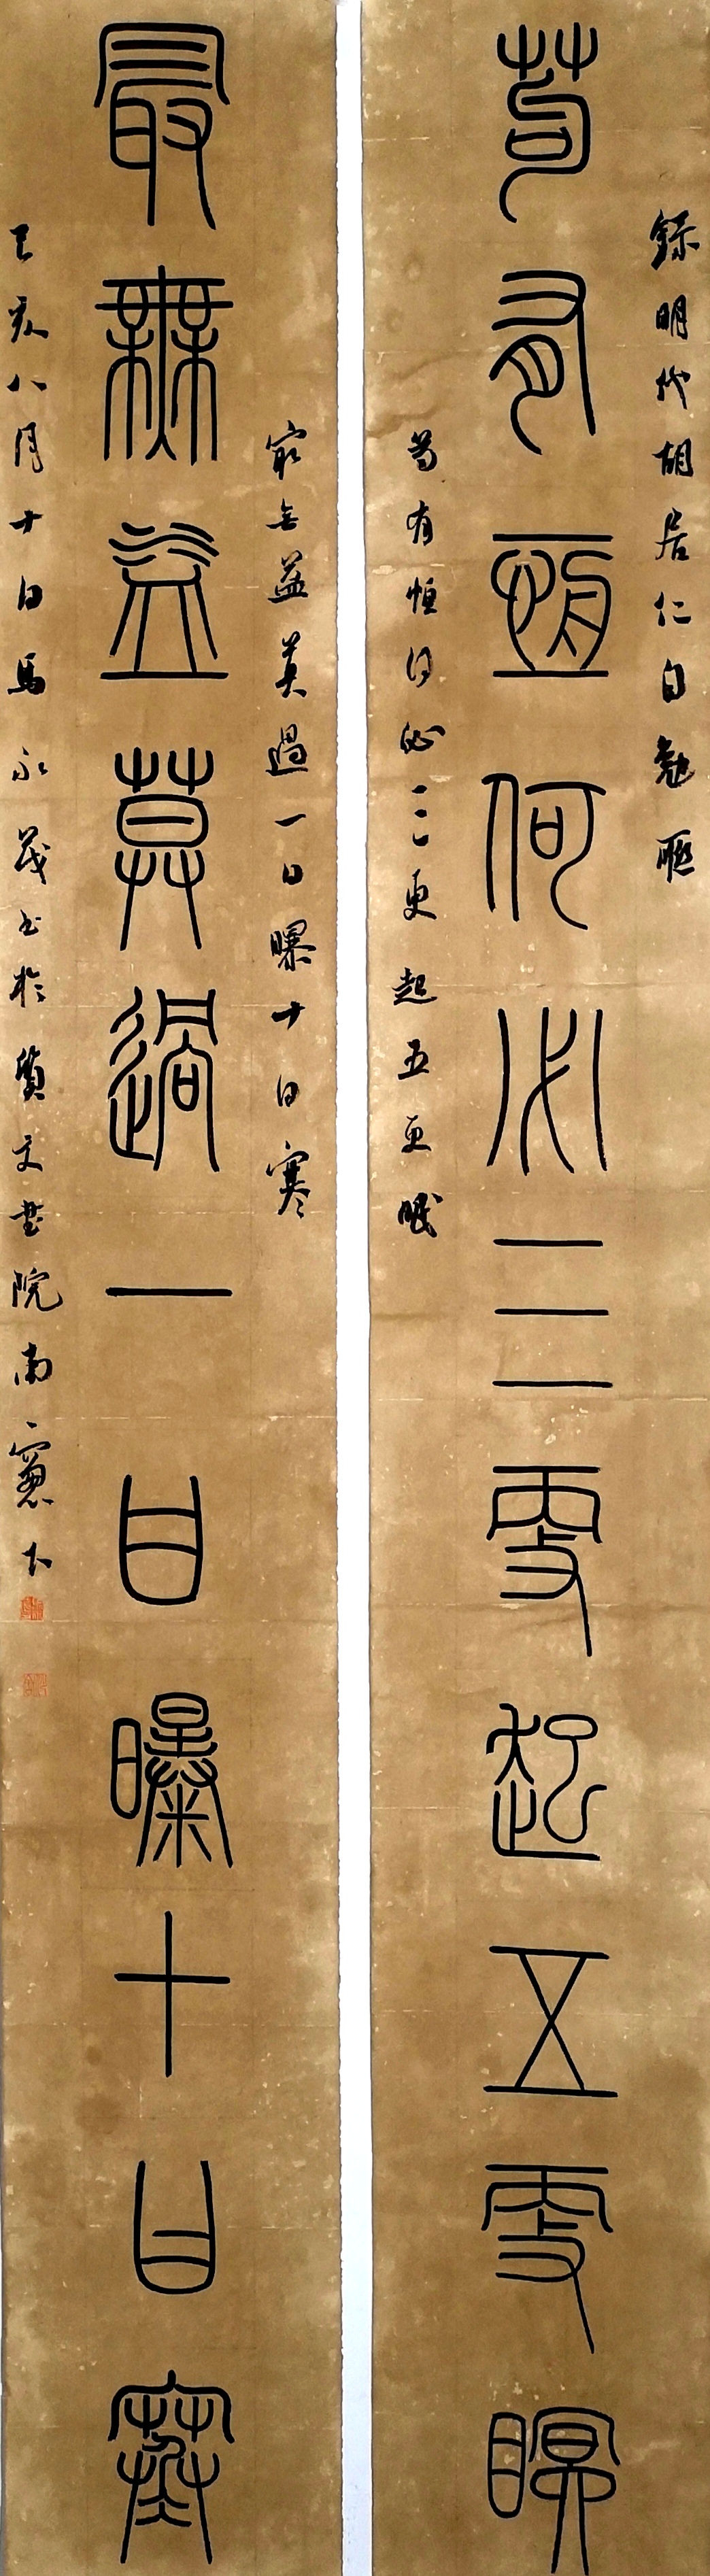 錄明代胡居仁自勉聯
苟有恆何必三更起五更眠
苟有恆何必三更起五更眠
最無益莫過一日曝十日寒
最無益莫過一日曝十日寒
己亥八月十日馬永茂書於質文書院南窗下